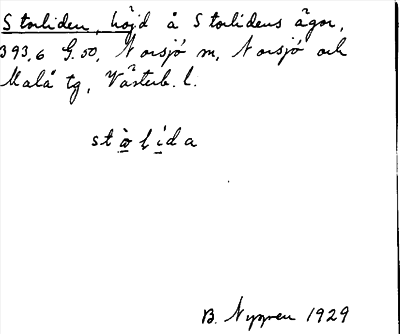 Storliden, höjd å Storlidens ägor,
393,6 G.50, Norsjö m, Norsjö och
Malå tg, Västerb. l.
stòlida
B. Nygren 1929